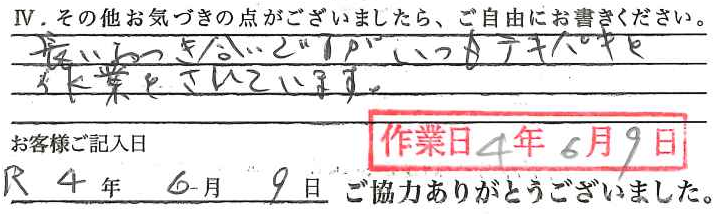 Ⅳ．その他お気づきの点がございましたら、ご自由にお書きください。
長いおつき合いですがいつもテキパキと
作業をされています。
お客様ご記入日
作業日 4年 6月 9日
R 4 年 6 月 9 日 ご協力ありがとうございました。